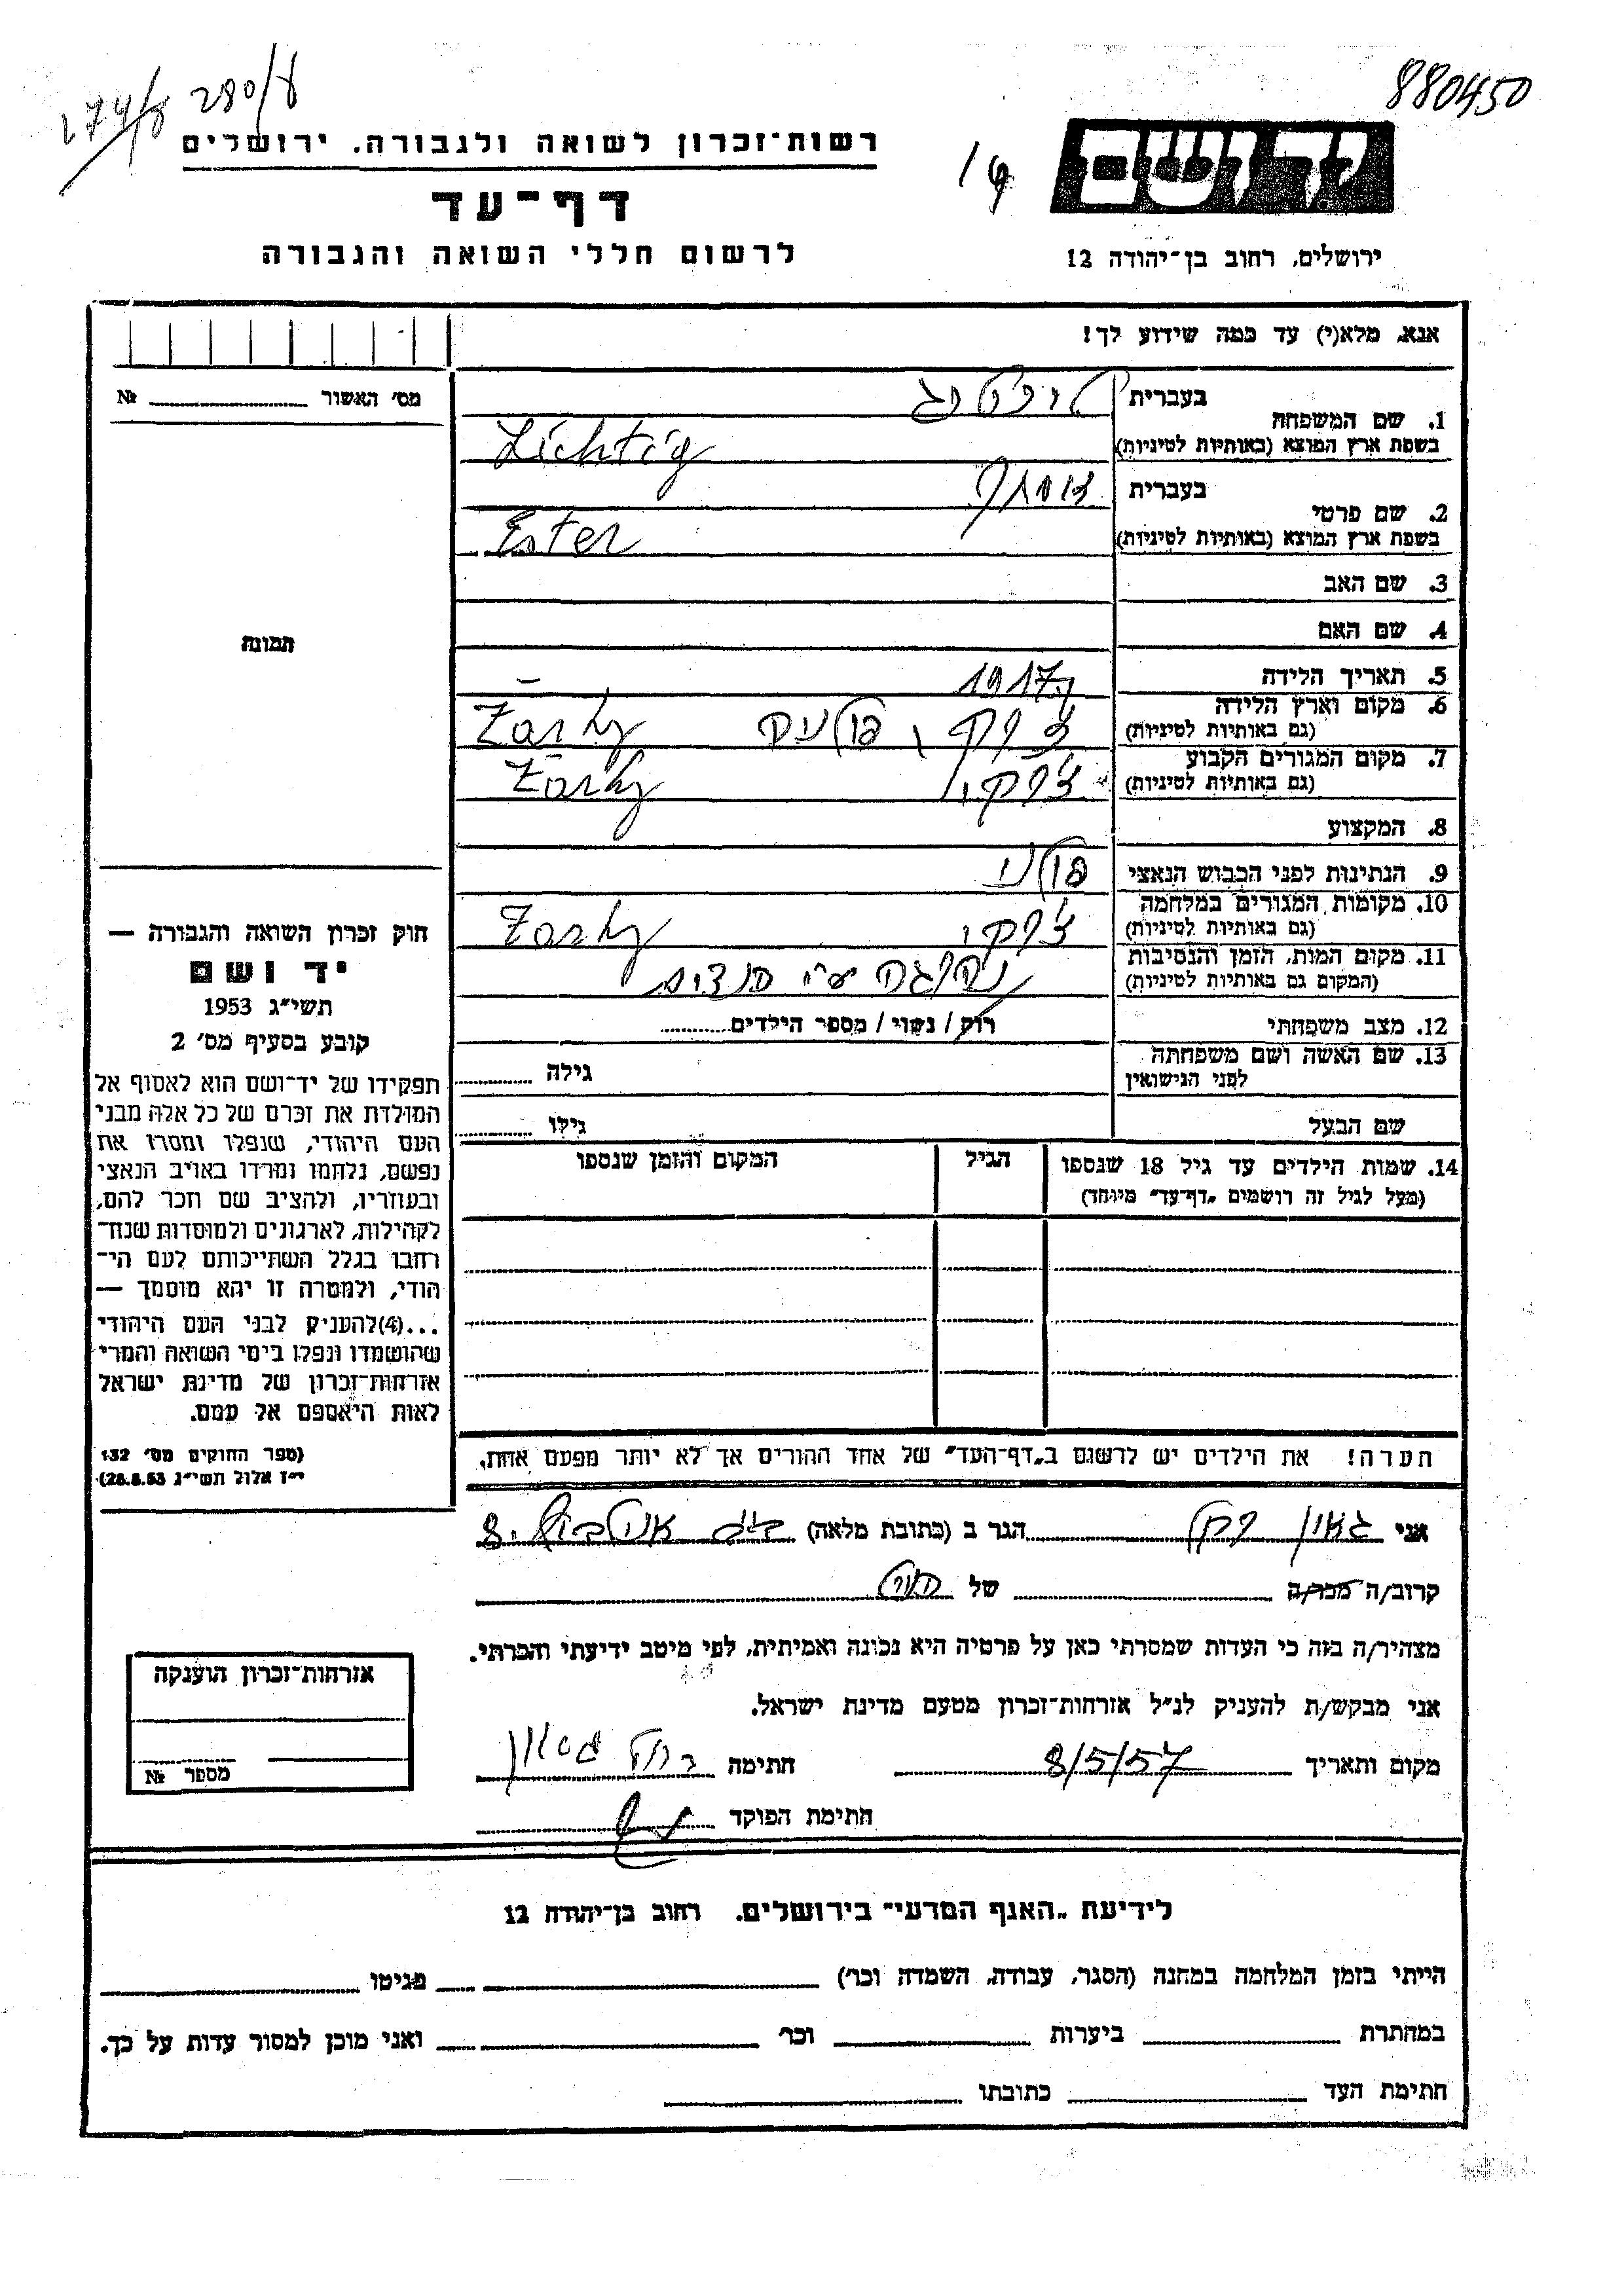 880450
274/8 280/8
יד ושם
רשות־זכרון לשואה ולגבורה, ירושלים
דף־עד
ירושלים, רחוב בן־יהודה 12
לרשום חללי השואה והגבורה
אנא, מלא(י) עד כמה שידוע לך!
מס׳ האשור № 
1. שם המשפחה
בעברית ליכטיג
בשפת ארץ המוצא (באותיות לטיניות) Lichtig
2. שם פרטי
בעברית אסתר
בשפת ארץ המוצא (באותיות לטיניות) Ester
3. שם האב
4. שם האם
תמונה
5. תאריך הלידה 1917
6. מקום וארץ הלידה
(גם באותיות לטיניות) פולניה Zarky
7. מקום המגורים הקבוע
(גם באותיות לטיניות) Zarky
8. המקצוע
9. הנתינות לפני הכבוש הנאצי
10. מקומות המגורים במלחמה
(גם באותיות לטיניות) Zarky
11. מקום המות, הזמן והנסיבות
(המקום גם באותיות לטיניות) ע״י
12. מצב משפחתי רוק / נשוי / מספר הילדים
13. שם האשה ושם משפחתה
לפני הנישואין גילה
שם הבעל גילו
14. שמות הילדים עד גיל 18 שנספו הגיל המקום והזמן שנספו
(מעל לגיל זה רושמים „דף־עד״ מיוחד)
חוק זכרון השואה והגבורה —
יד ושם
תשי״ג 1953
קובע בסעיף מס׳ 2
תפקידו של יד־ושם הוא לאסוף אל
המולדת את זכרם של כל אלה מבני
העם היהודי, שנפלו ומסרו את
נפשם, נלחמו ומרדו באויב הנאצי
ובעוזריו, ולהציב שם וזכר להם,
לקהילות, לארגונים ולמוסדות שנח־
רבו בגלל השתייכותם לעם הי־
הודי, ולמטרה זו יהא מוסמך —
...(4)להעניק לבני העם היהודי
שהושמדו ונפלו בימי השואה והמרי
אזרחות־זכרון של מדינת ישראל
לאות היאספם אל עמם.
(ספר החוקים מס׳ 132
י״ז אלול תשי״ג 28.8.53)
הערה! את הילדים יש לרשום ב„דף־העד״ של אחד ההורים אך לא יותר מפעם אחת.
אני גאון רחל הגר ב (כתובת מלאה) 8
קרוב/ה מכר/ה של
מצהיר/ה בזה כי העדות שמסרתי כאן על פרטיה היא נכונה ואמיתית, לפי מיטב ידיעתי והכרתי.
אני מבקש/ת להעניק לנ״ל אזרחות־זכרון מטעם מדינת ישראל.
מקום ותאריך 8/5/57 חתימה רחל גאון
חתימת הפוקד
אזרחות־זכרון הוענקה
מספר №
לידיעת „האגף המדעי״ בירושלים. רחוב בן־יהודה 12
הייתי בזמן המלחמה במחנה (הסגר, עבודה, השמדה וכר׳) בגיטו
במחתרת ביערות וכר׳ ואני מוכן למסור עדות על כך.
חתימת העד כתובתו